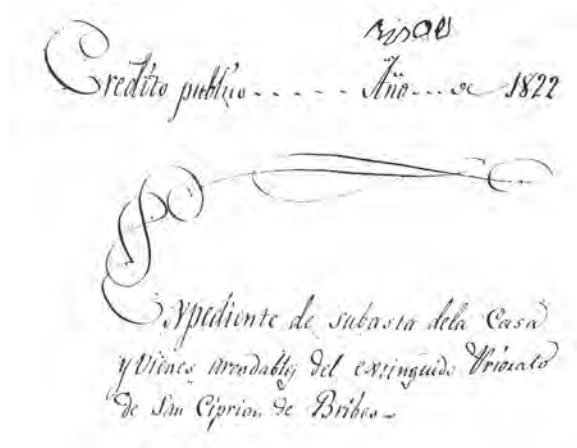 Credito publico - - - - - Año - - - de 1822
Expediente de subasta dela Casa
y Vienes arrendables del extinguido Priorato
de San Ciprian de Bribes